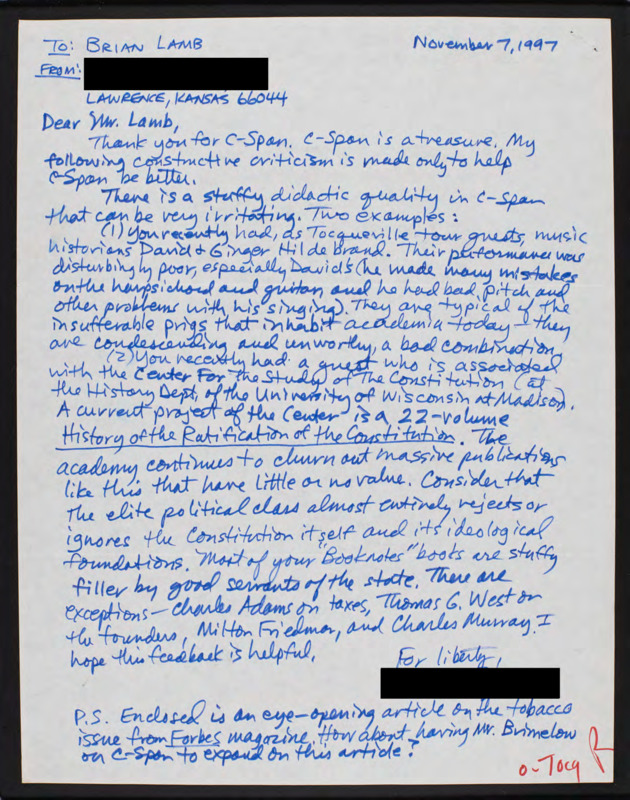 TO: BRIAN LAMB
November 7, 1997
FROM:
LAWRENCE, KANSAS 66044
Dear Mr. Lamb,
Thank you for C-Span. C-Span is a treasure. My
following constructive criticism is made only to help
C-Span be better.
There is a stuffy didactic quality in C-Span
that can be very irritating. Two examples:
(1) You recently had, as Tocqueville tour guests, music
historians David & Ginger Hildebrand. Their performance was
disturbingly poor, especially David's (he made many mistakes
on the harpsichord and guitar, and he had bad pitch and
other problems with his singing). They are typical of the
insufferable prigs that inhabit academia today - they
are condescending and unworthy, a bad combination.
(2) You recently had a guest who is associated
with the Center For the Study of The Constitution (at
the History Dept. of the University of Wisconsin at Madison).
A current project of the Center is a 22-volume
History of the Ratification of the Constitution. The
academy continues to churn out massive publications
like this that have little or no value. Consider that
the elite political class almost entirely rejects or
ignores the Constitution itself and its ideological
foundations. Most of your "Booknotes" books are stuffy
filler by good servants of the state. There are
exceptions - Charles Adams on taxes, Thomas G. West on
the founders, Milton Friedman, and Charles Murray. I
hope this feedback is helpful.
For liberty,
P.S. Enclosed is an eye-opening article on the tobacco
issue from Forbes magazine. How about having Mr. Brimelow
on C-Span to expand on this article?
o-Tocq